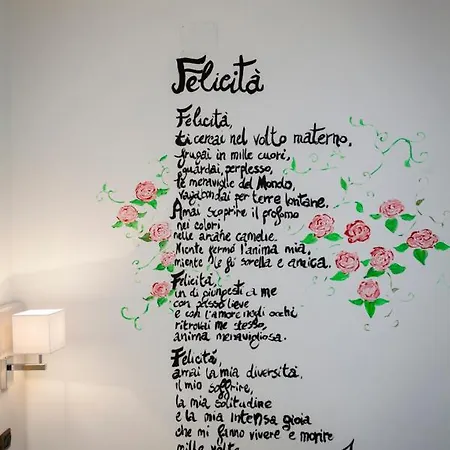 Felicità
Felicità,
ti cercai nel volto materno,
frugai in mille cuori,
guardai, perplesso,
le meraviglie del Mondo,
vagabondai per terre lontane.
Amai scoprire il profumo
nei colori
nelle arcane camelie.
Niente fermò l'anima mia,
niente le fu sorella e amica.
Felicità,
un dì giungesti a me
con passo lieve
e con l'amore negli occhi
ritrovai me stesso,
anima meravigliosa.
Felicità,
amai la mia diversità,
il mio soffrire,
la mia solitudine
e la mia intensa gioia
che mi fanno vivere e morire
mille volte